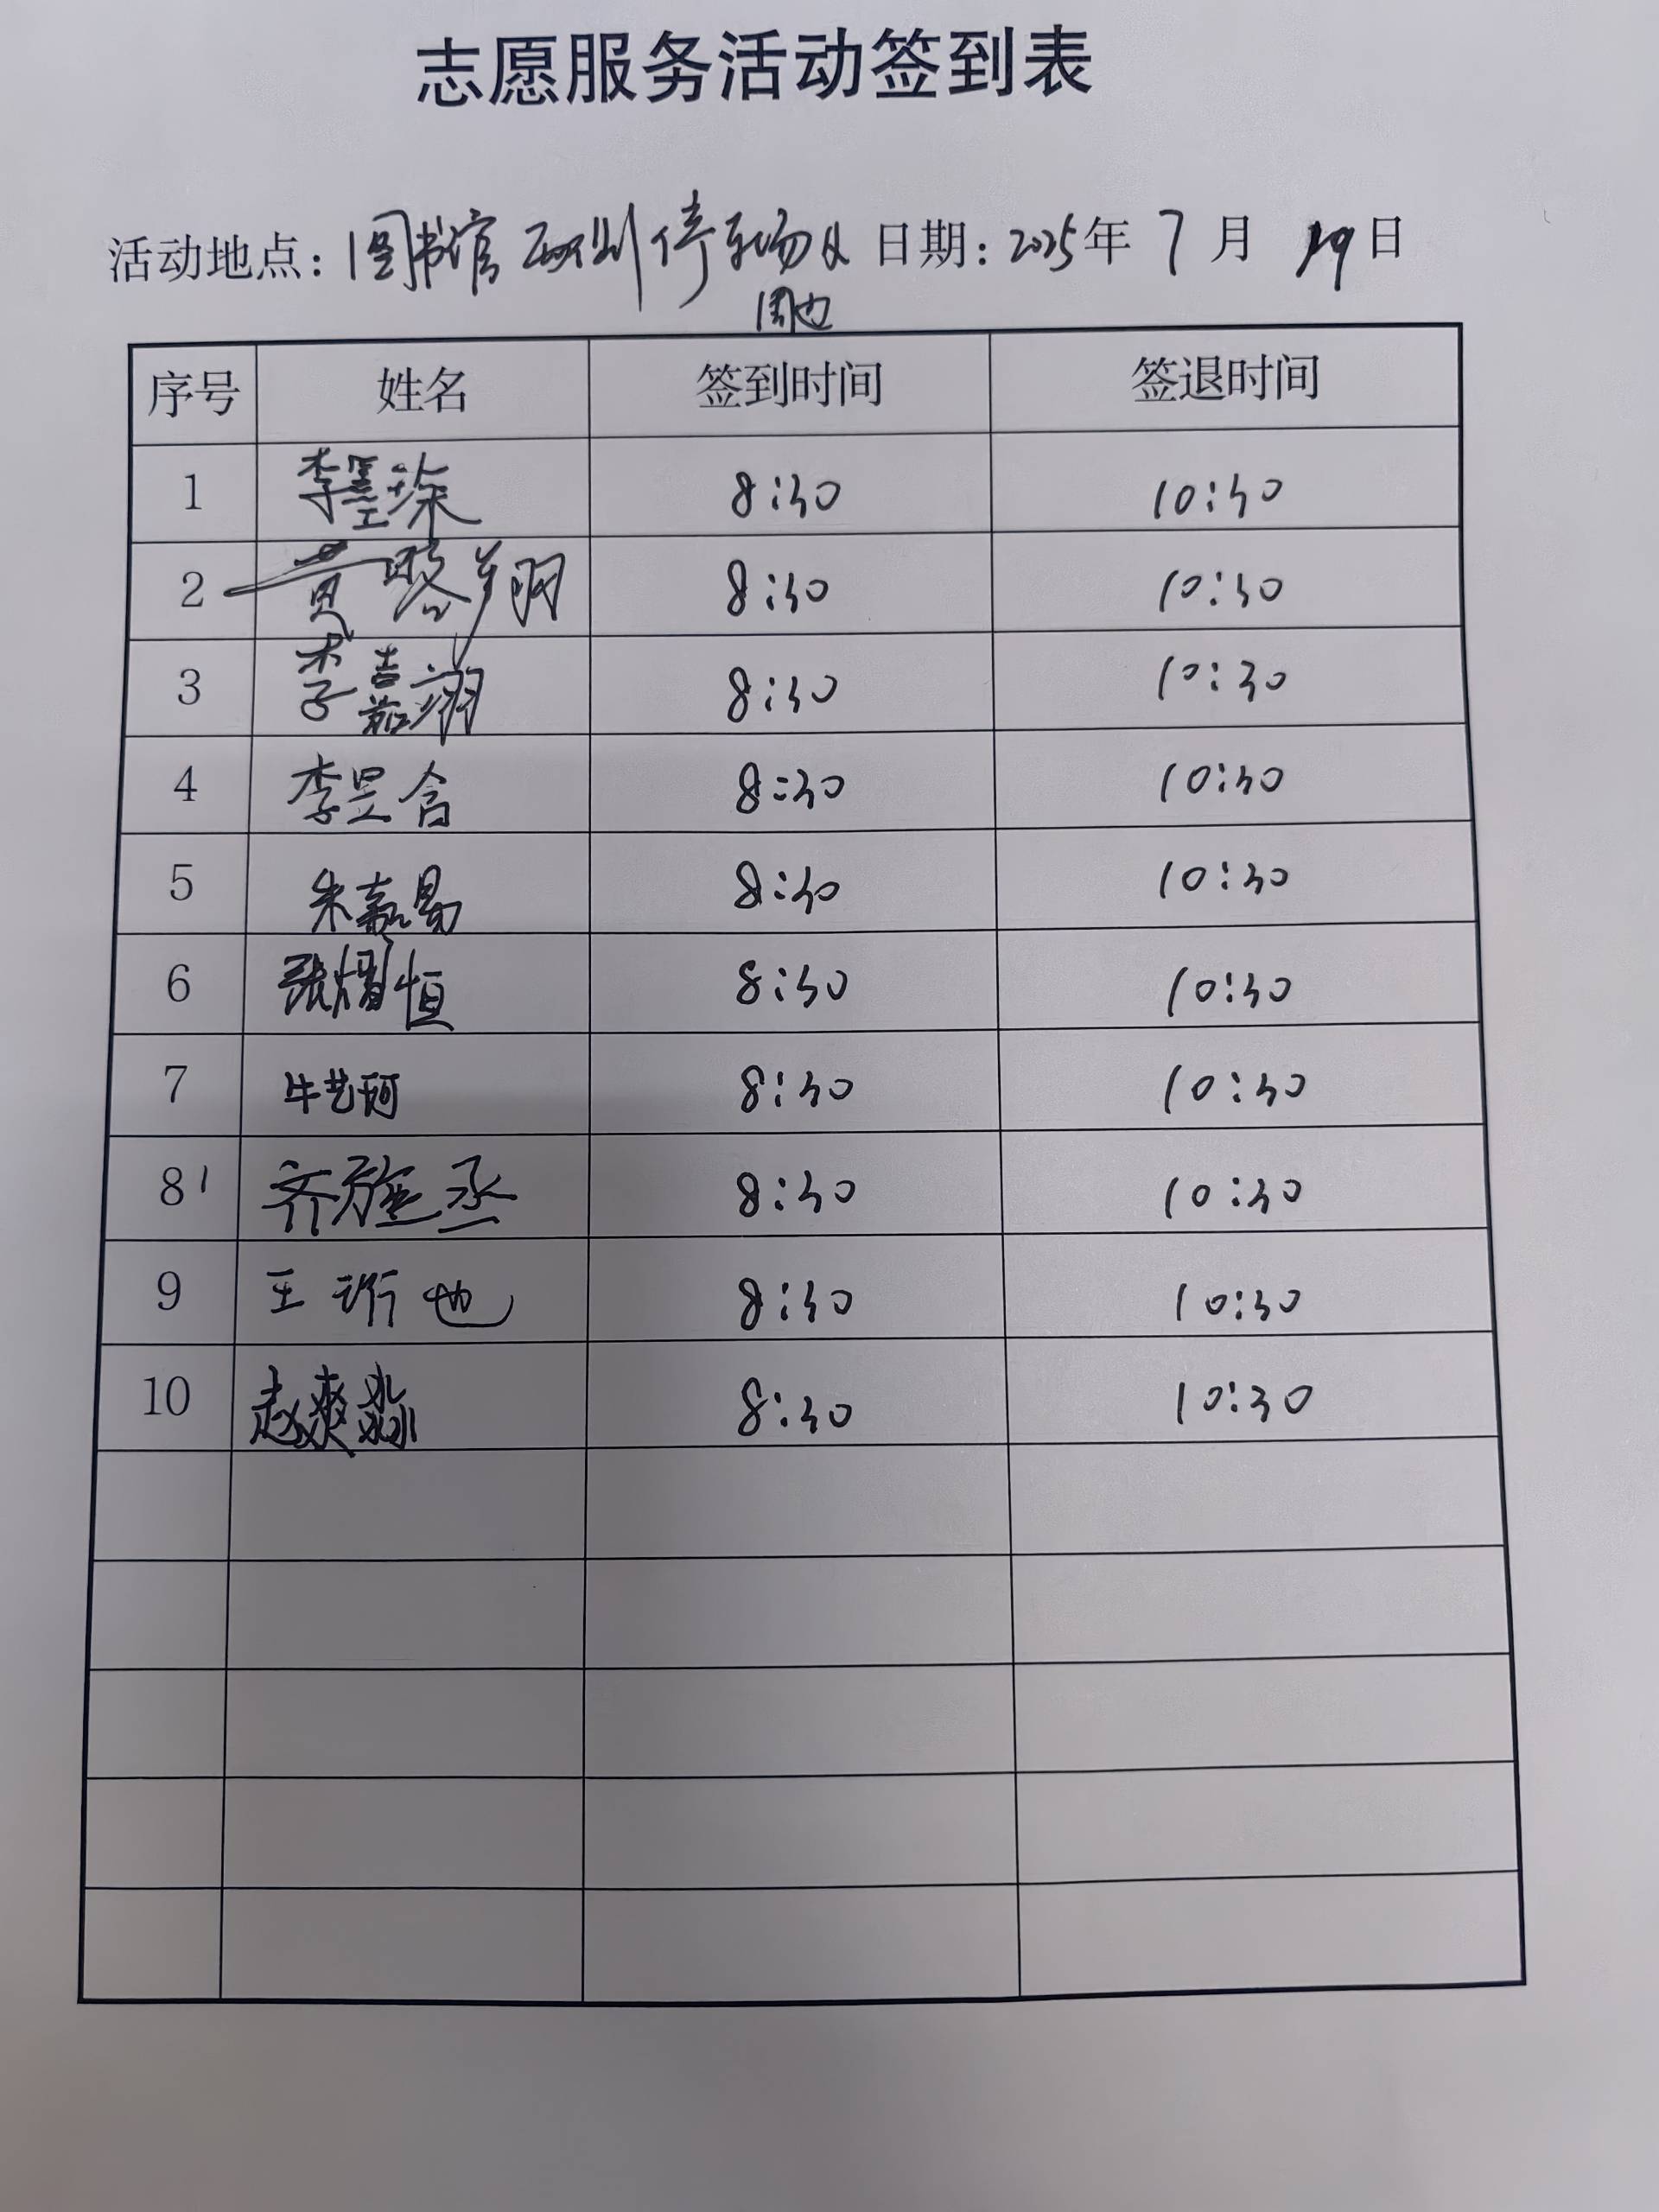 志愿服务活动签到表
活动地点: 图书馆西侧停车场及 日期: 2025年 7月 19日
周边
序号 姓名 签到时间 签退时间
1 李墨琛 8:30 10:30
2 黄翔 8:30 10:30
3 李嘉翊 8:30 10:30
4 李昱含 8:30 10:30
5 朱嘉易 8:30 10:30
6 张熠恒 8:30 10:30
7 牛艺珂 8:30 10:30
8 齐丞 8:30 10:30
9 王珩也 8:30 10:30
10 赵爽淼 8:30 10:30